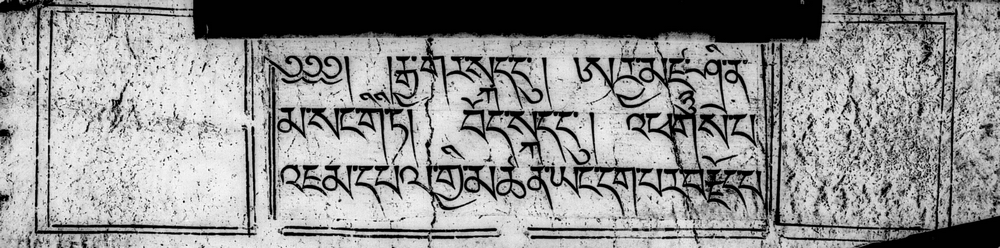 ༄༅༅། །རྒྱ་གར་སྐད་དུ། ཨཱརྱ་མཉྫུ་ཤྲཱི་ནཱ
མ་སངྒཱི་ཏི། བོད་སྐད་དུ། འཕགས་པ
འཇམ་དཔལ་གྱི་མཚན་ཡང་དག་པར་བརྗོད་པ